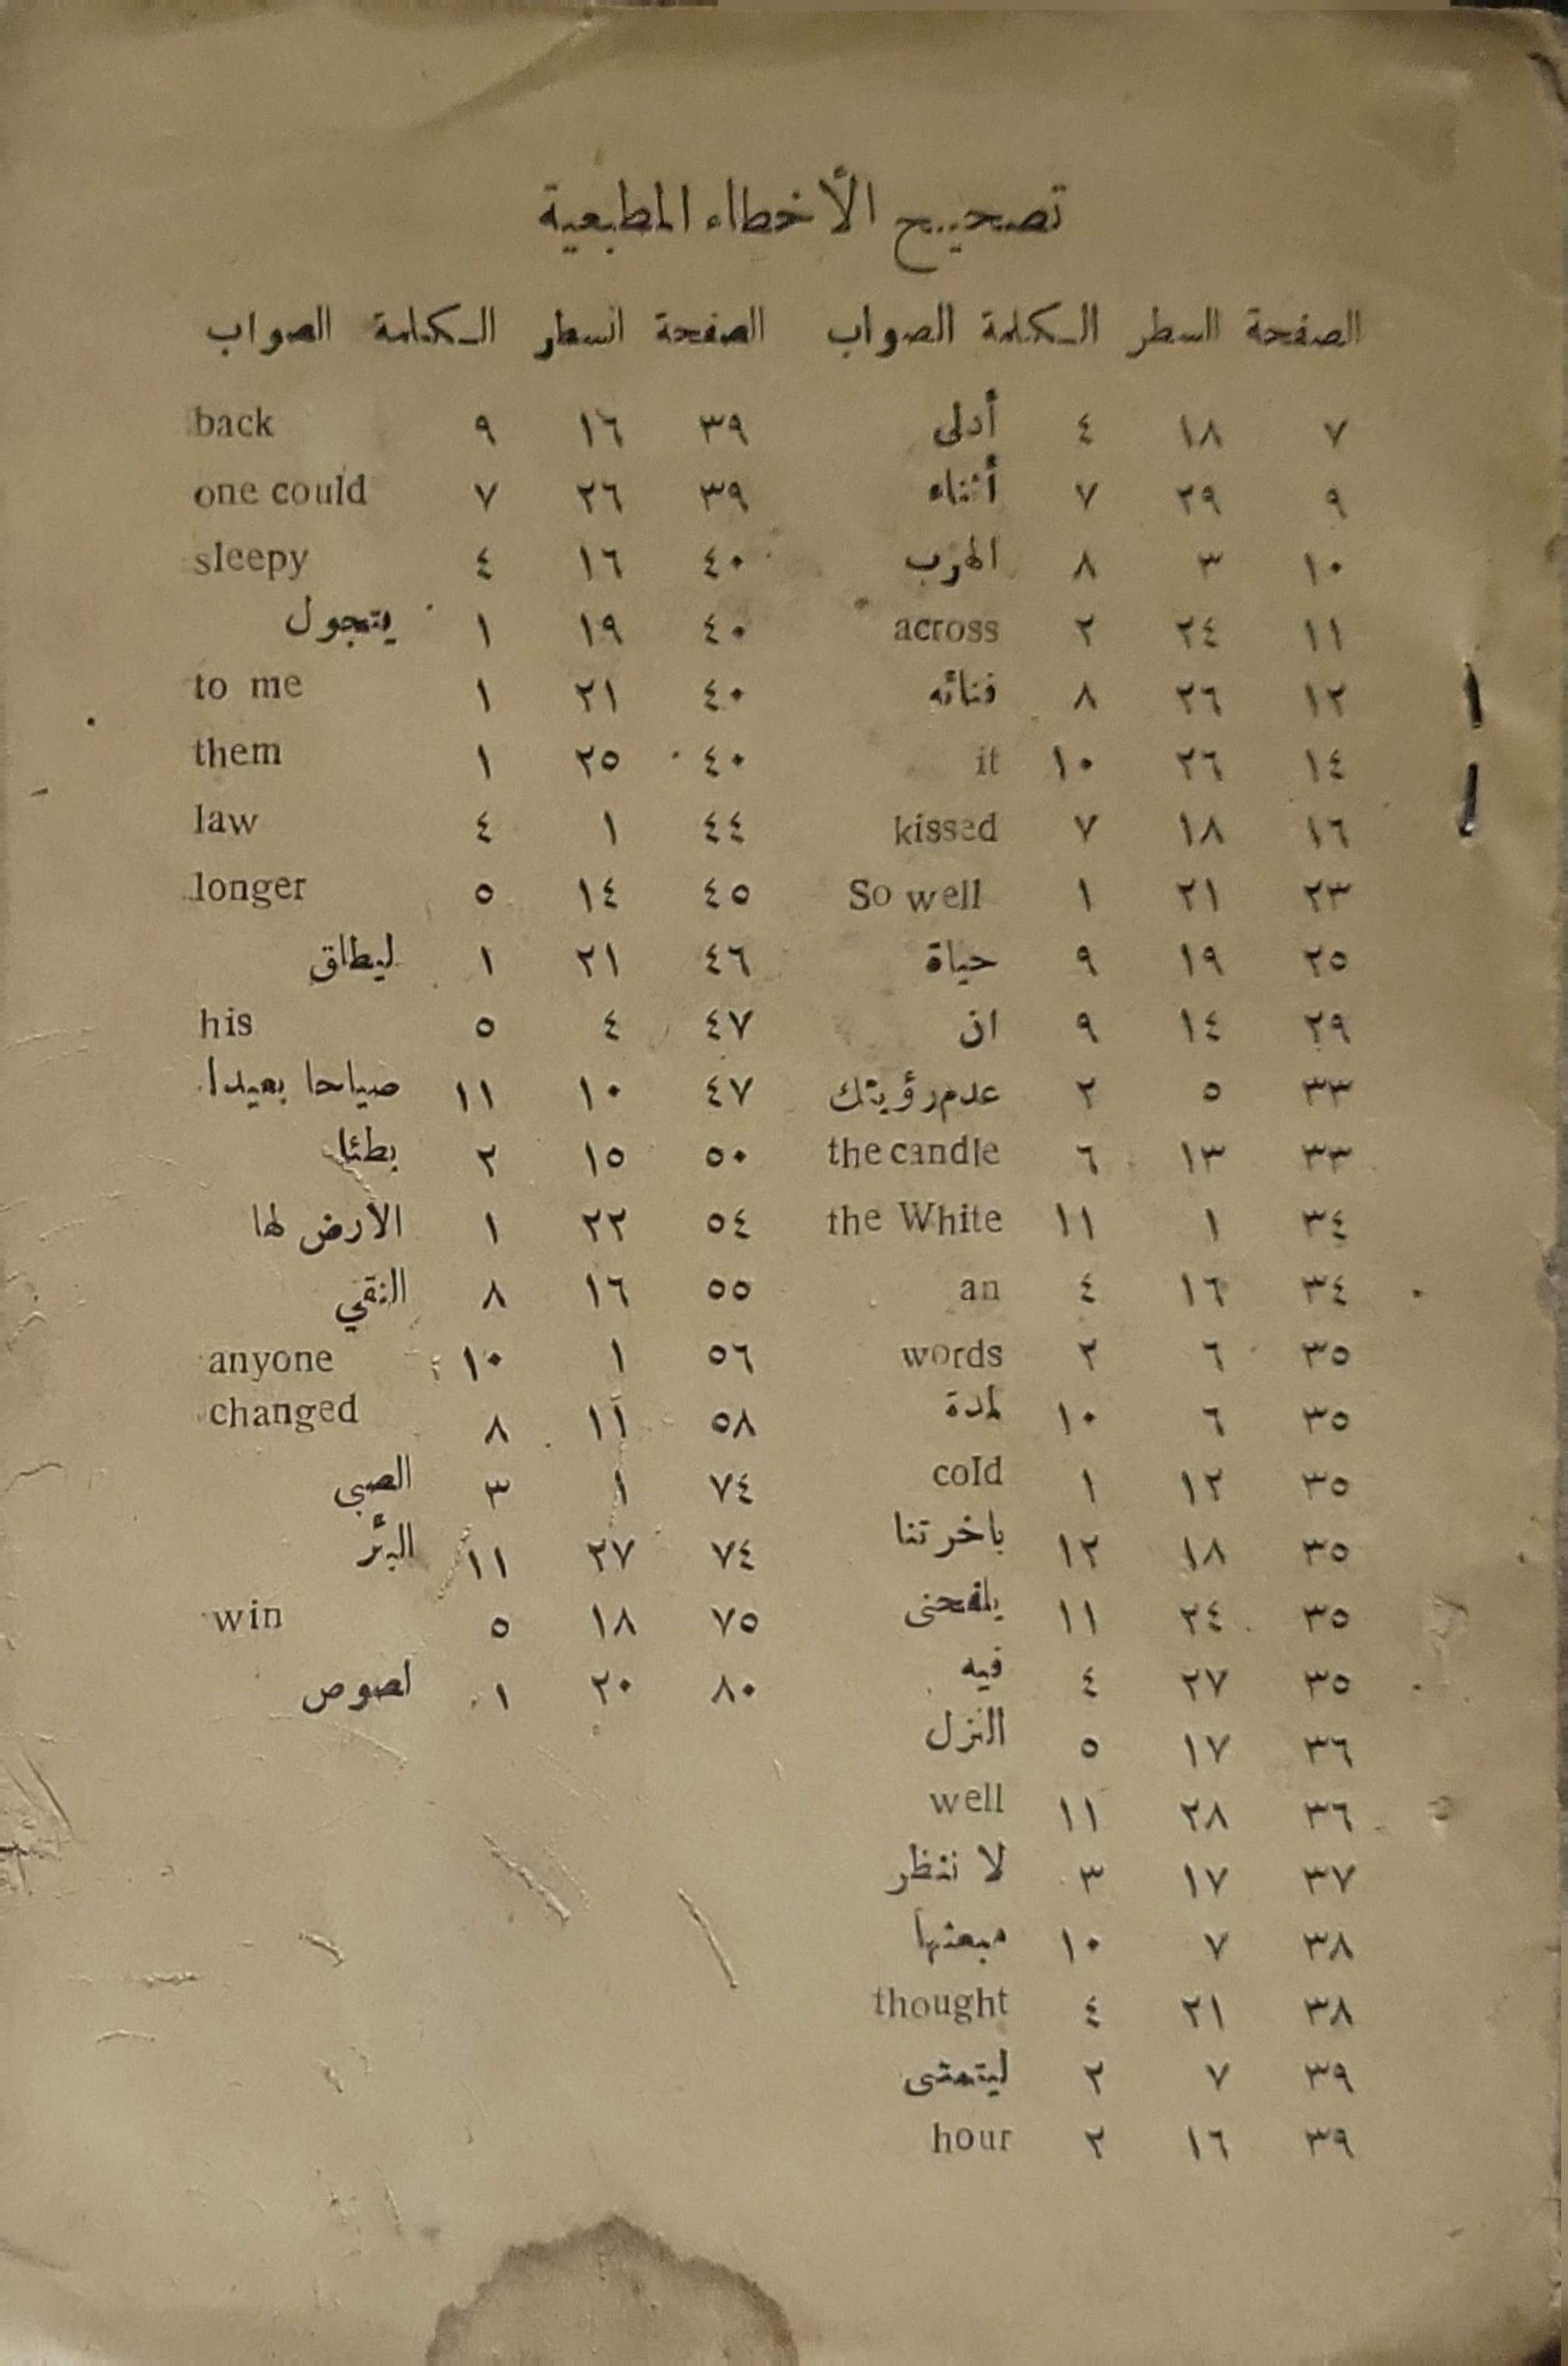 تصحيح الأخطاء المطبعية
الصفحة السطر الكلمة الصواب الصفحة السطر الكلمة الصواب
٧ ١٨ ٤ أدلى ٣٩ ١٦ ٩ back
٩ ٢٩ ٧ أثناء ٣٩ ٢٦ ٧ one could
١٠ ٣ ٨ الهرب ٤٠ ١٦ ٤ sleepy
١١ ٢٤ ٢ across ٤٠ ١٩ ١ يتجول
١٢ ٢٦ ٨ فنائه ٤٠ ٢١ ١ to me
١٤ ٢٦ ١٠ it ٤٠ ٢٥ ١ them
١٦ ١٨ ٧ kissed ٤٤ ١ ٤ law
٢٣ ٢١ ١ So well ٤٥ ١٤ ٥ longer
٢٥ ١٩ ٩ حياة ٤٦ ٢١ ١ ليطلق
٢٩ ١٤ ٩ ان ٤٧ ٤ ٥ his
٣٣ ٥ ٢ عدم رؤيتك ٤٧ ١٠ ١١ صياحا بعيدا
٣٣ ١٣ ٦ the candle ٥٠ ١٥ ٢ بطئا
٣٤ ١ ١١ the White ٥٤ ٢٢ ١ الارض لها
٣٤ ١٦ ٤ an ٥٥ ١٦ ٨ النقي
٣٥ ٦ ٢ words ٥٦ ١ ١٠ anyone
٣٥ ٦ ١٠ لمدة ٥٨ ١١ ٨ changed
٣٥ ١٢ ١ cold ٧٤ ١ ٣ الصبي
٣٥ ١٨ ١٢ باخرتنا ٧٤ ٢٧ ١١ البئر
٣٥ ٢٤ ١١ يلفحنى ٧٥ ١٨ ٥ win
٣٥ ٢٧ ٤ فيه ٨٠ ٢٠ ١ لصوص
٣٦ ١٧ ٥ النزل
٣٦ ٢٨ ١١ well
٣٧ ١٧ ٣ لا ننظر
٣٨ ٧ ١٠ مبعثها
٣٨ ٢١ ٤ thought
٣٩ ٧ ٢ ليتمشى
٣٩ ١٦ ٢ hour